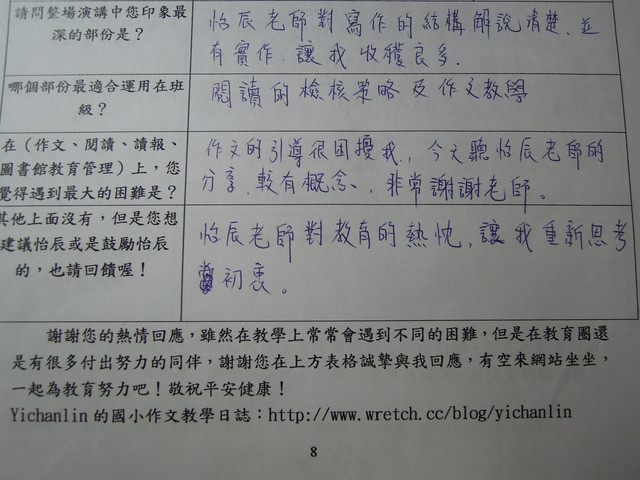 請問整場演講中您印象最
深的部份是？
怡辰老師對寫作的結構解說清楚、並
有實作、讓我收穫良多.
哪個部份最適合運用在班
級？
閱讀的檢核策略及作文教學
在（作文、閱讀、讀報、
圖書館教育管理）上，您
覺得遇到最大的困難是？
作文的引導很困擾我，今天聽怡辰老師的
分享、較有概念、非常謝謝老師。
其他上面沒有，但是您想
建議怡辰或是鼓勵怡辰
的，也請回饋喔！
怡辰老師對教育的熱忱，讓我重新思考
當初衷。
謝謝您的熱情回應，雖然在教學上常常會遇到不同的困難，但是在教育圈還
是有很多付出努力的同伴，謝謝您在上方表格誠摯與我回應，有空來網站坐坐，
一起為教育努力吧！敬祝平安健康！
Yichanlin 的國小作文教學日誌：http://www.wretch.cc/blog/yichanlin
8